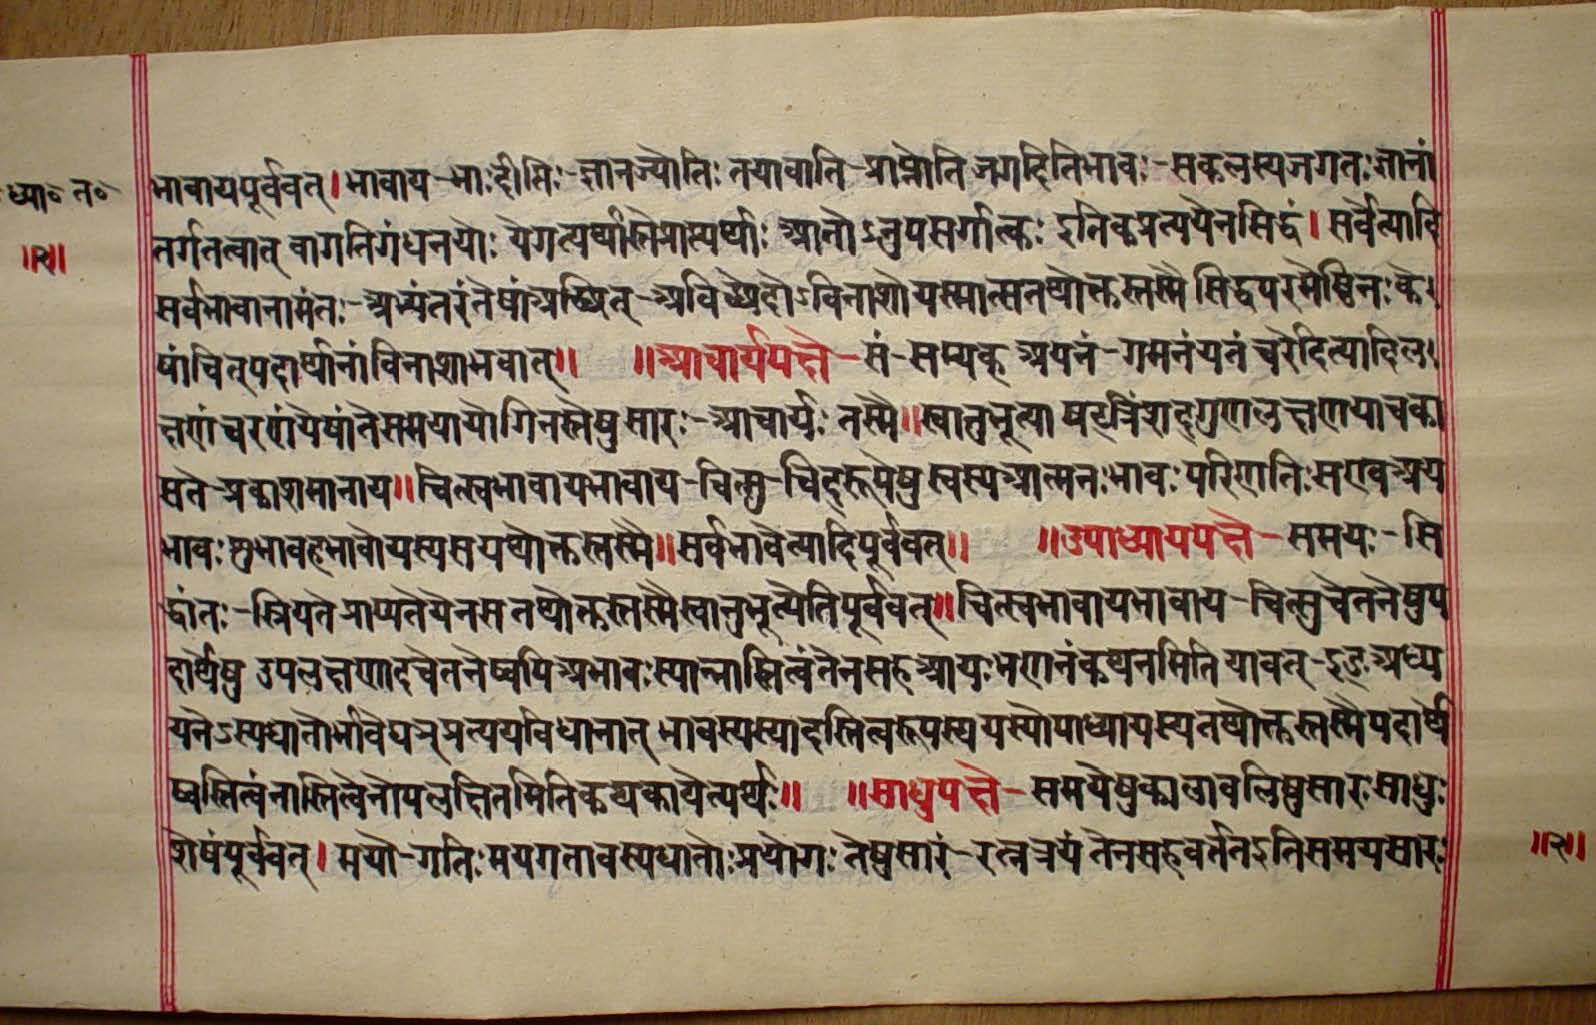 ध्या॰ त॰
॥२॥
भावायपूर्ववत्। भावाय-भाःदीप्तिः-ज्ञानज्योतिः तयावाति-प्राप्नोति जगदितिभावः-सकलस्यजगतःज्ञानां
तर्गतत्वात् वागतिगंधनयोः येगत्यर्थास्तेप्राप्त्यर्थाः आतोऽनुपसर्गात्कः इतिकप्रत्ययेनसिद्धं। सर्वेत्यादि
सर्वभावानामंतः-अभ्यंतरंतेषांअच्छित्-अविच्छेदोऽविनाशोयस्मात्सतथोक्तस्तस्मै सिद्धपरमेष्ठिनः के
षांचित्पदार्थानांविनाशाभवात्॥ ॥आचार्यपक्षे-सं-सम्यक् अयनं-गमनंयतंचरेदित्यादिल
क्षणंचरणंयेषांतेसमयायोगिनस्तेषुसारः-आचार्यः तस्मै॥स्वानुभूत्या षट्त्रिंशद्गुणलक्षणयाचका
सते-प्रकाशमानाय॥चित्स्वभावायभावाय-चित्सु-चिद्रूपेषुस्वस्यआत्मनःभावःपरिणतिःसएवअय
भावःशुभावहभावोयस्यसयथोक्तस्तस्मै॥सर्वभावेत्यादिपूर्ववत्॥ ॥उपाध्यायपक्षे-समयः-सि
द्धांतः-स्रियते प्राप्यतेयेनसतथोक्तस्तस्मैस्वानुभूत्येतिपूर्ववत्॥चित्स्वभावायभावाय-चित्सुचेतनेषुप
दार्थेषु उपलक्षणादचेतनेष्वपिअभावःस्यान्नास्तित्वंतेनसहआयःभणनंकथनमितियावत्-इङ्अध्य
यनेऽस्यधातोर्भावेघञ्प्रत्ययविधानात् भावस्यस्यादस्तित्वरूपस्ययस्योपाध्यायस्यतथोक्तस्तस्मैपदार्थे
ष्वस्तित्वंनास्तित्वेनोपलक्षितमितिकथकायेत्यर्थः॥ ॥साधुपक्षे-समयेषुकालावलिषुसारःसाधुः
शेषंपूर्ववत्। मयो-गतिःमयगतावस्यधातोःप्रयोगः तेषुसारं-रत्नत्रयं तेनसहवर्ततेइतिसमयसारः
॥२॥